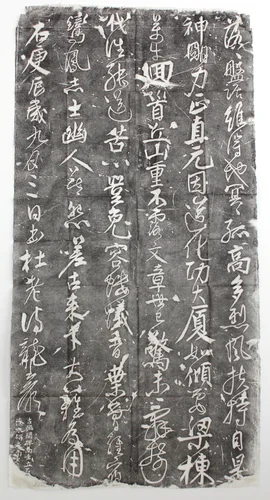 落落盤踞雖得地冥冥孤高多烈風扶持自是
神明力正直元因造化功大廈如傾要梁棟
萬牛迴首丘山重不露文章世已驚未辭翦
伐誰能送苦心豈免容螻蟻香葉曾經宿
鸞鳳志士幽人莫怨嗟古來材大難為用
右庚辰歲九月二日書杜老詩龍巖